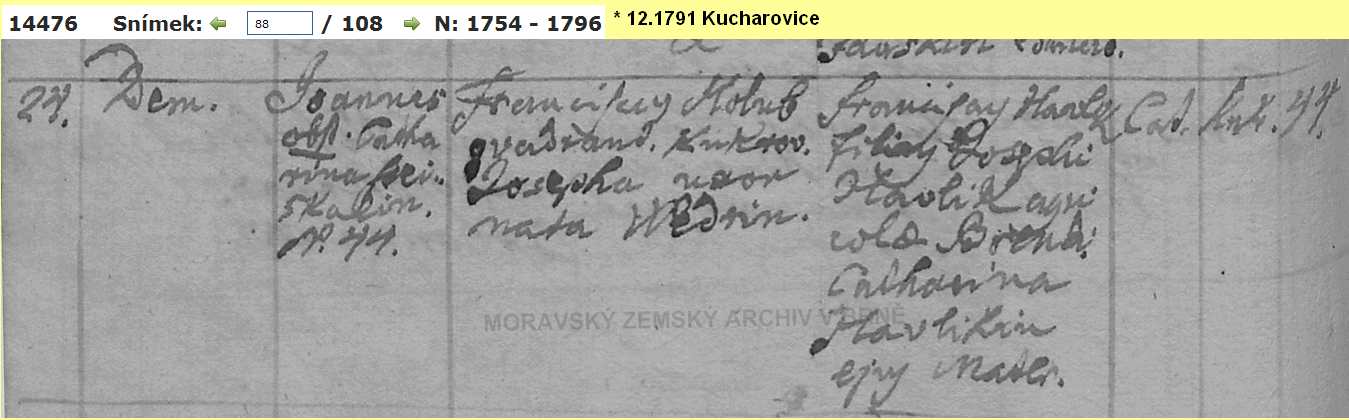 14476 Snímek: 88 / 108 N: 1754 - 1796 * 12.1791 Kucharovice
24. Dem. Joannes
obst. Catha
rina
skalin.
N. 44.
Franciscy Holub
quadrant. Kukrov.
Josepha uxor
nata Wedrin.
Franciscy Havlik
filiy Josephi
Havlik agri
colae
Catharina
Havlikin
ejus Mater.
Cat. Kuk. 44.
MORAVSKÝ ZEMSKÝ ARCHIV V BRNĚ